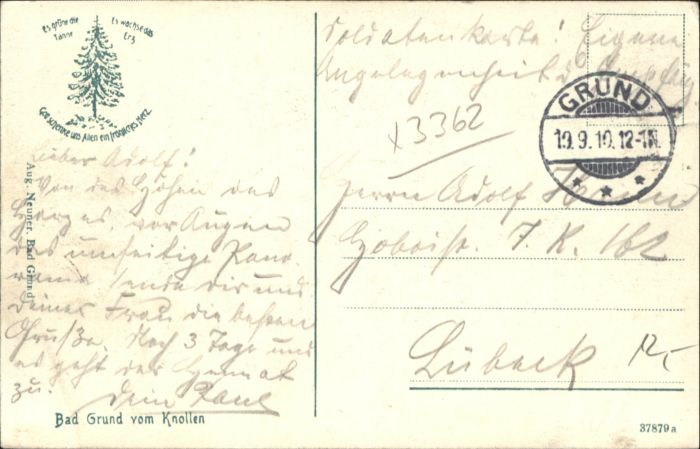 Es grüne die Tanne
Es wachse das Erz
Gott schenke uns Allen ein fröhliches Herz
Soldatenkarte! Eigene
Angelegenheit d.
GRUND
19.9.10.12-1N.
x3362
Lieber Adolf!
Von des Höhen des
Harzes, vor Augen
das umseitige Pano-
rama sende dir und
deiner Frau die besten
Grüße. Noch 3 Tage und
es geht der Heimat
zu. Dein Paul
Herrn Adolf
Hoboist. I.R. 162
Lübeck
12,-
Aug. Neuner, Bad Grund
Bad Grund vom Knollen
37879a